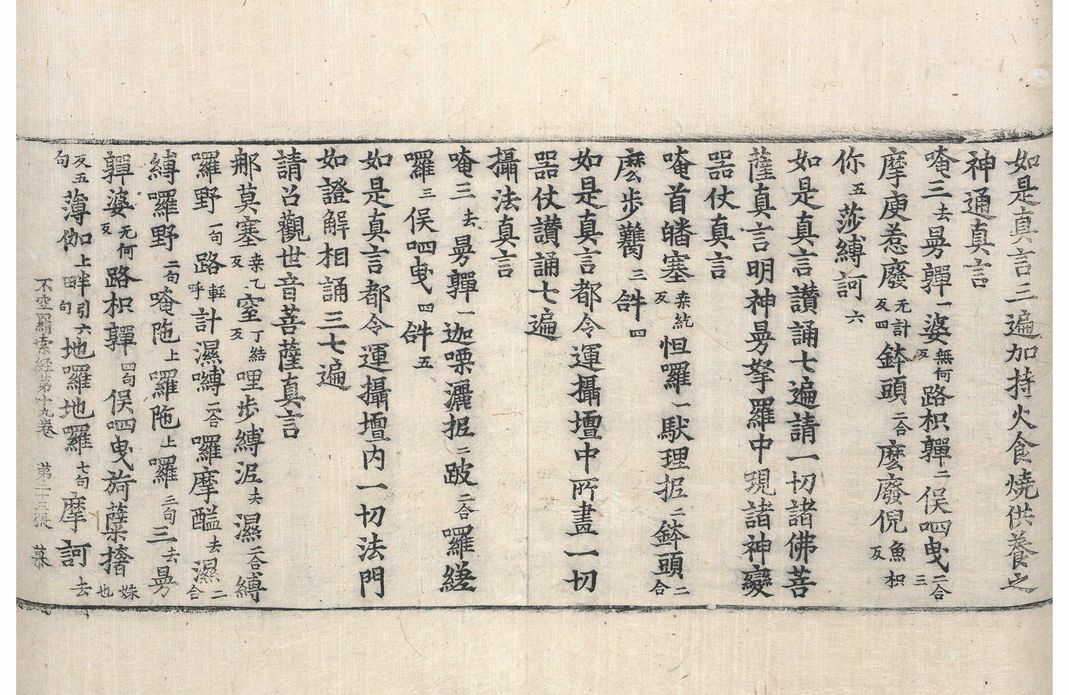 如是真言三遍加持火食燒供養之
神通真言
唵三去曼𩋘一婆無何反路枳𩋘二俁呬曳二合三
摩庾惹廢无計反四鉢頭二合麽廢倪魚枳反
你五莎縛訶六
如是真言讚誦七遍請一切諸佛菩
薩真言明神曼拏羅中現諸神變
器仗真言
唵首皤塞桒紇反怛羅一馱理抳二鉢頭二合
麽步𩦲三𤙖四
如是真言都令運攝壇中所畫一切
器仗讚誦七遍
攝法真言
唵三去曼𩋘一迦㗚灑抳二跛二合囉縒
囉三俁呬曳四𤙖五
如是真言都令運攝壇內一切法門
如證解相誦三七遍
請召觀世音菩薩真言
那莫塞桒乙反窒丁結反哩步縛泥去濕二合縛
囉野一句路輕呼計濕縛二合囉摩醯去濕二合
縛囉野二句唵陁上囉陁上囉三句三去曼
𩋘婆无何反路枳𩋘四句俁呬曳旑㜸擔也
反五句薄伽上伴引六句地囉地囉七句摩訶去
不空羂索経第十九卷 第二十三張 慕